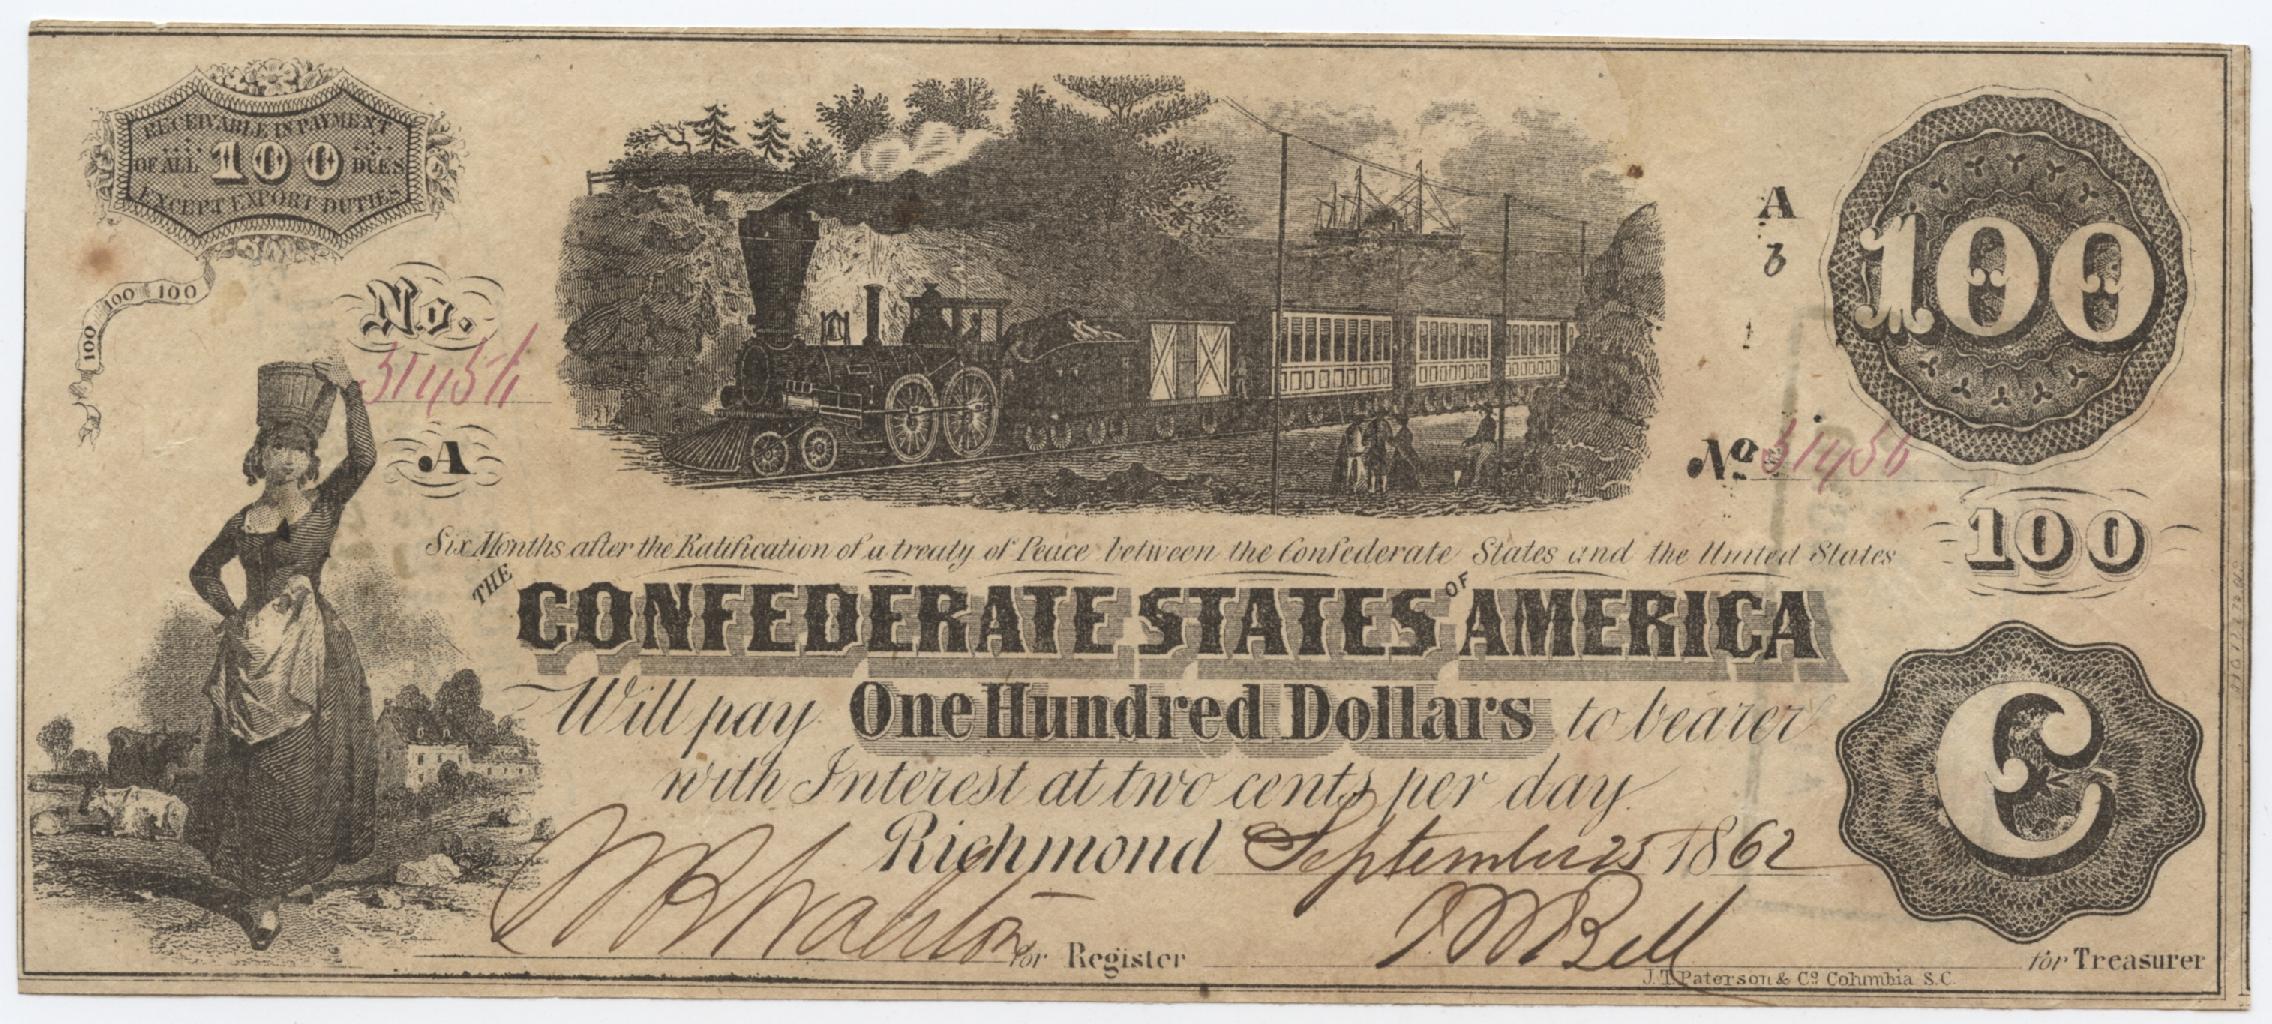 RECEIVABLE IN PAYMENT
OF ALL 100 DUES
EXCEPT EXPORT DUTIES
100 100 100
No.
A
A
b
1
100
No
100
Six Months after the Ratification of a treaty of Peace between the Confederate States and the United States
THE CONFEDERATE STATES OF AMERICA
Will pay One Hundred Dollars to bearer
with Interest at two cents per day.
Richmond September 25 1862
C
for Register
J M Bell
for Treasurer
J.T. Paterson & Co Columbia S.C.